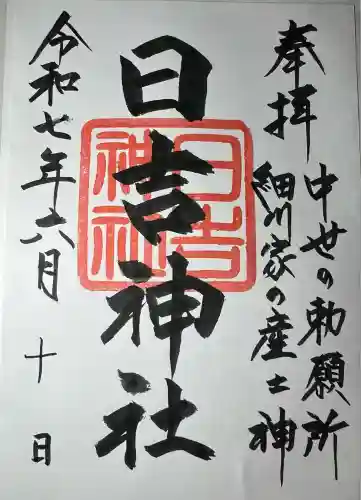 奉拝
中世の勅願所
細川家の産土神
日吉神社
日吉神社
令和七年六月十日